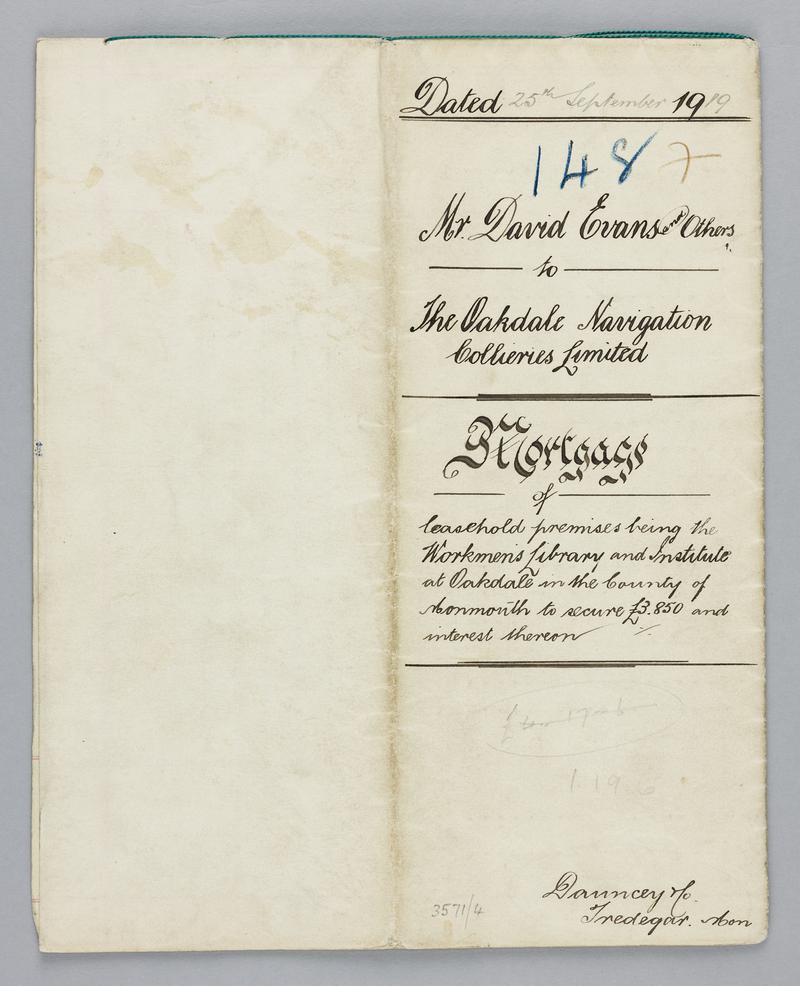 Dated 25th September 1919
148 7
Mr. David Evans and Others
to
The Oakdale Navigation
Collieries Limited
Mortgage
of
leasehold premises being the
Workmen's Library and Institute
at Oakdale in the County of
Monmouth to secure £3.850 and
interest thereon
3571/4
Dauncey & Co.
Tredegar. Mon